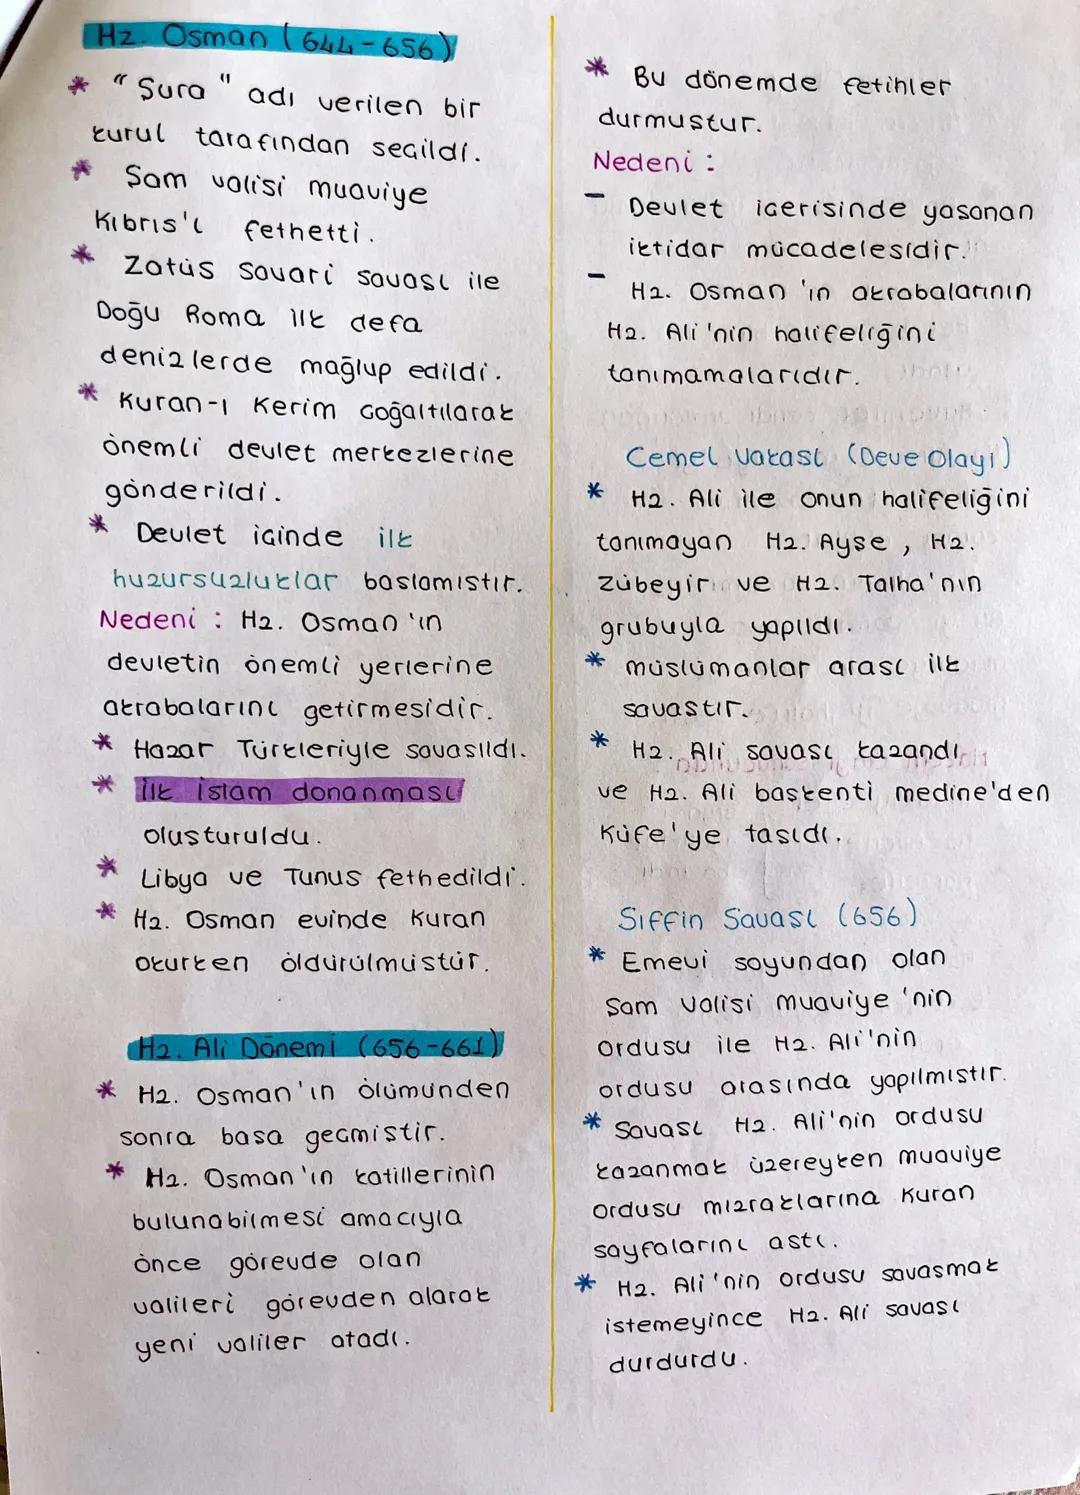 Hz. Osman (644-656)
* "Şura" adı verilen bir
kurul tarafından seçildi.
* Şam valisi muaviye
Kıbrıs'ı fethetti.
* Zatüs Savari savaşı ile
Doğu Roma ilk defa
denizlerde mağlup edildi.
* Kuran-ı Kerim çoğaltılarak
önemli devlet merkezlerine
gönderildi.
* Devlet içinde ilk
huzursuzluklar başlamıştır.
Nedeni : Hz. Osman'ın
devletin önemli yerlerine
akrabalarını getirmesidir.
* Hazar Türkleriyle savaşıldı.
* İlk İslam donanması
oluşturuldu.
* Libya ve Tunus fethedildi.
* Hz. Osman evinde Kuran
okurken öldürülmüştür.
Hz. Ali Dönemi (656-661)
* Hz. Osman'ın ölümünden
sonra başa geçmiştir.
* Hz. Osman'ın katillerinin
bulunabilmesi amacıyla
önce görevde olan
valileri görevden alarak
yeni valiler atadı.
* Bu dönemde fetihler
durmuştur.
Nedeni :
- Devlet içerisinde yaşanan
iktidar mücadelesidir.
- Hz. Osman'ın akrabalarının
Hz. Ali'nin halifeliğini
tanımamalarıdır.
Cemel Vakası (Deve Olayı)
* Hz. Ali ile onun halifeliğini
tanımayan Hz. Ayşe, Hz.
Zübeyir ve Hz. Talha'nın
grubuyla yapıldı.
* müslümanlar arası ilk
savaştır.
* Hz. Ali savaşı kazandı
ve Hz. Ali başkenti medine'den
Küfe'ye taşıdı.
Sıffin Savaşı (656)
* Emevi soyundan olan
Şam Valisi Muaviye'nin
ordusu ile Hz. Ali'nin
ordusu arasında yapılmıştır.
* Savaşı Hz. Ali'nin ordusu
kazanmak üzereyken muaviye
ordusu mızraklarına Kuran
sayfalarını astı.
* Hz. Ali'nin ordusu savaşmak
istemeyince Hz. Ali savaşı
durdurdu.